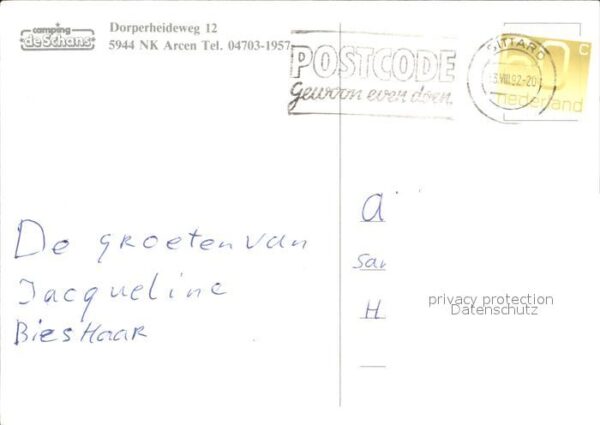 camping
deSchans
Dorperheideweg 12
5944 NK Arcen Tel. 04703-1957
POSTCODE
gewoon even doen.
SITTARD
VIII.92-20
C
nederland
De groeten van
Jacqueline
BiesHaar
a
Sar
H
privacy protection
Datenschutz